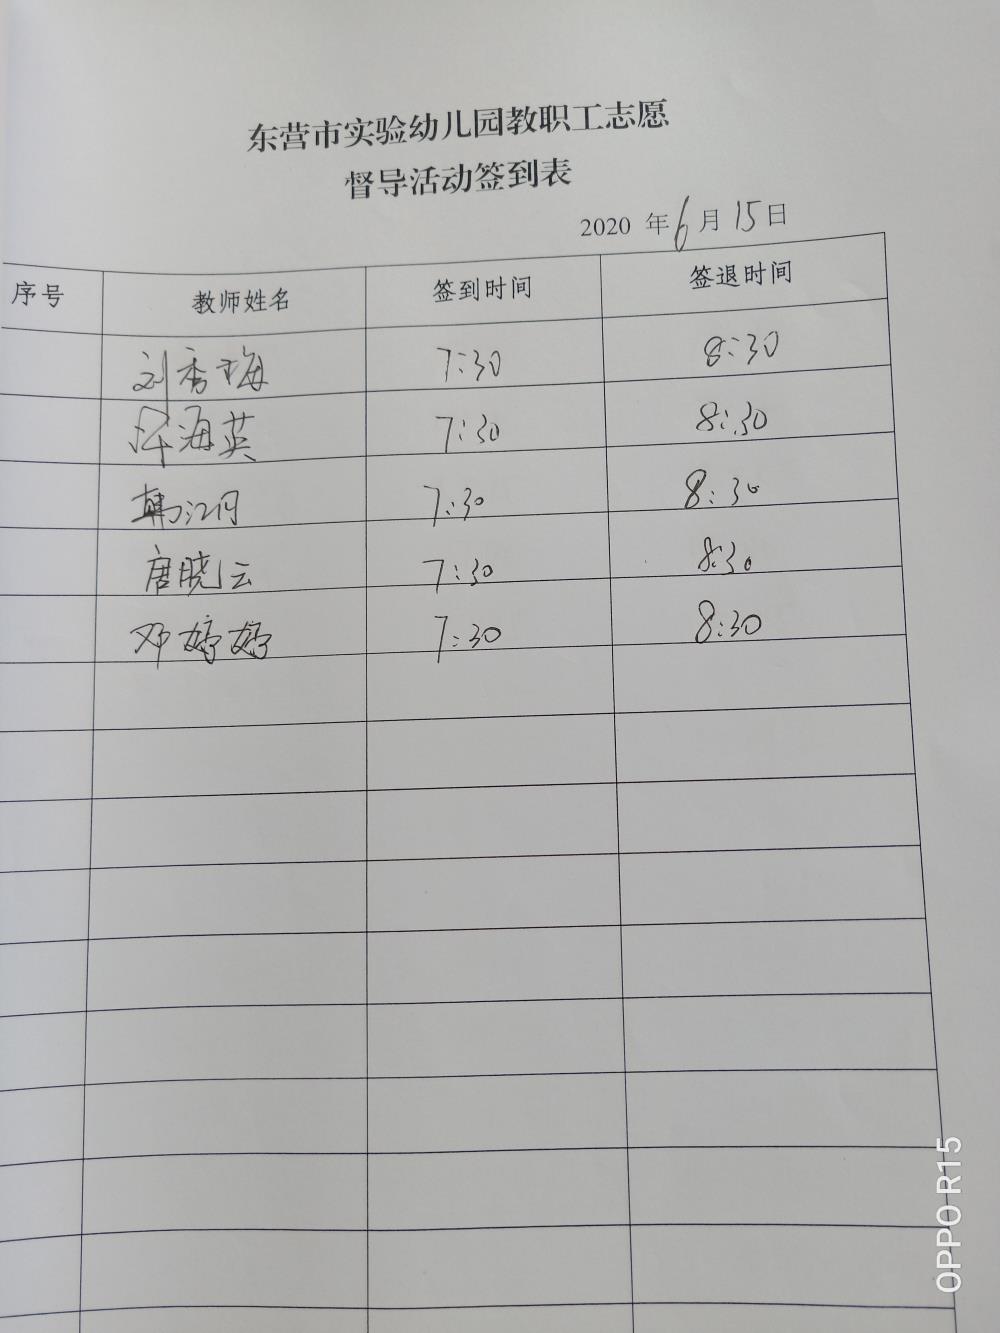 东营市实验幼儿园教职工志愿
督导活动签到表
2020 年 6 月 15 日
序号 教师姓名 签到时间 签退时间
刘秀梅 7:30 8:30
海英 7:30 8:30
韩江月 7:30 8:30
唐晓云 7:30 8:30
邓婷婷 7:30 8:30
OPPO R15